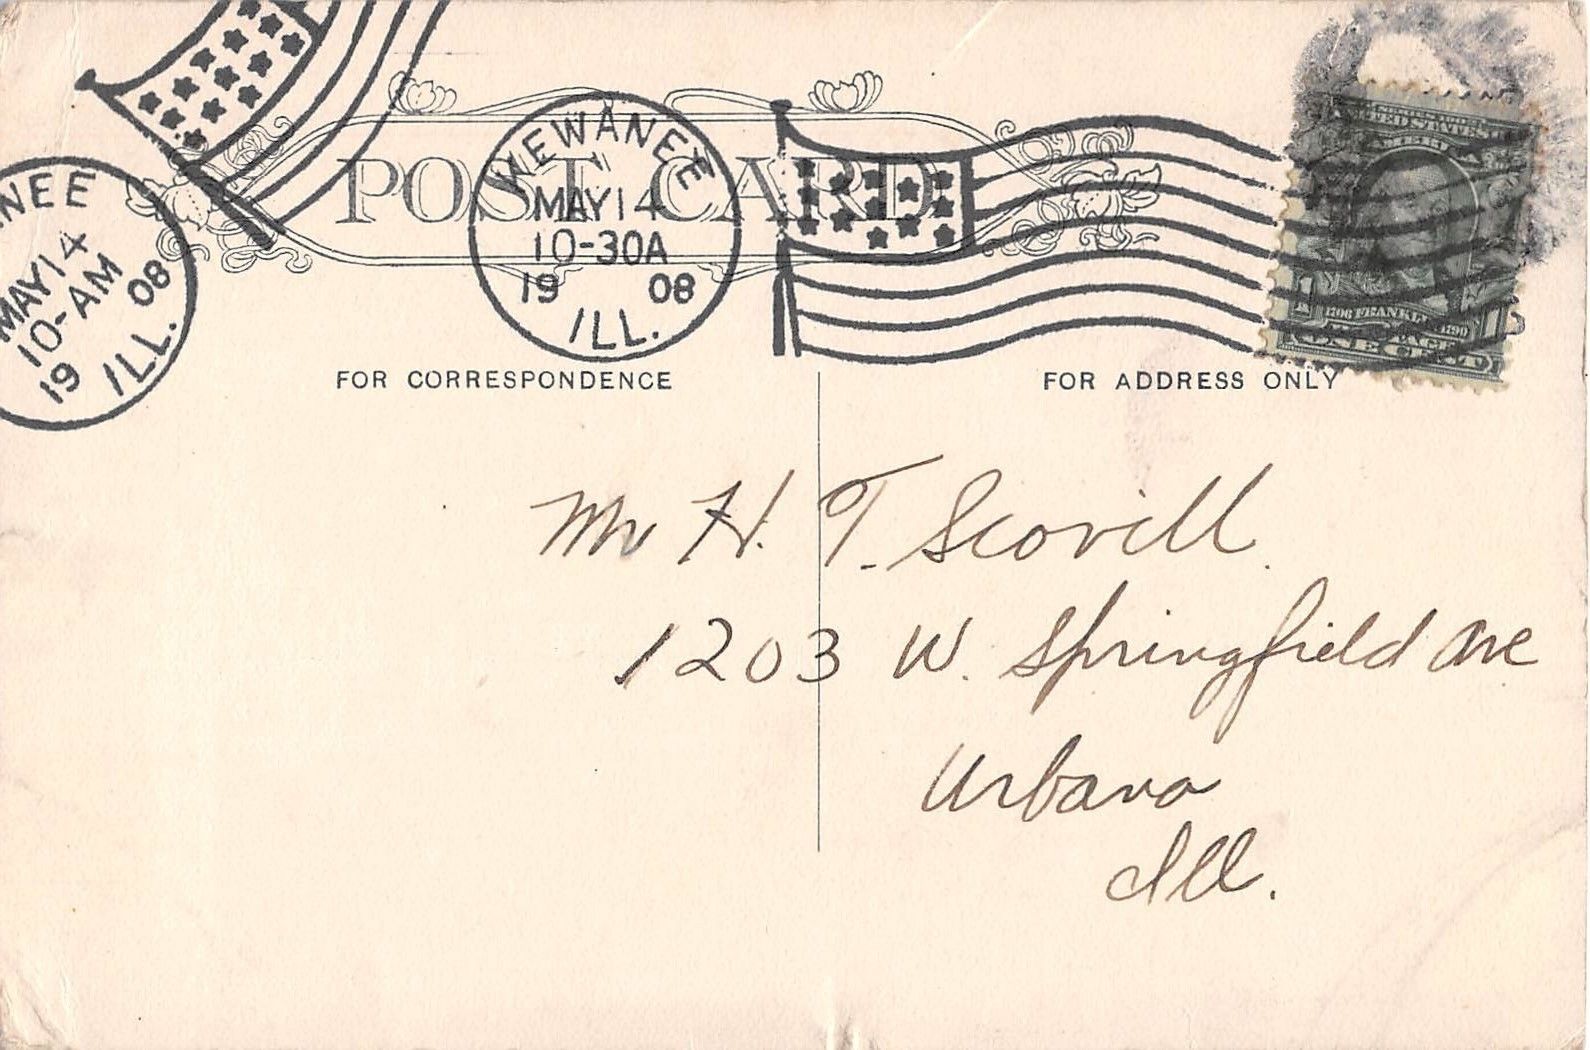 POST CARD
KEWANEE
MAY 14
10-30A
19 08
ILL.
NEE
MAY 14
10-AM
19 08
ILL.
UNITED STATES
AMERICA
1
1706 FRANKLIN 1790
POSTAGE
ONE CENT
FOR CORRESPONDENCE
FOR ADDRESS ONLY
Mr H. T. Scovill.
1203 W. Springfield Ave
Urbana
Ill.